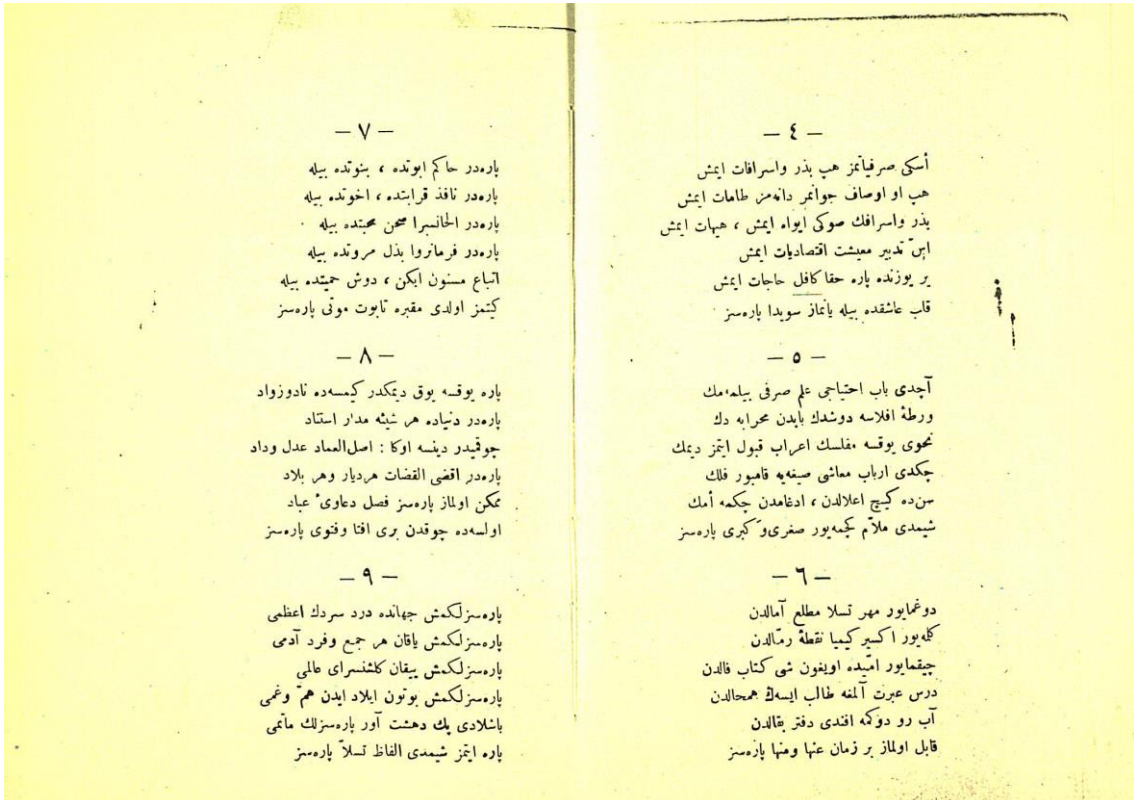 — ٤ —
أسكی صرفیاتمز هپ بذر واسرافات ایمش
هپ او اوصاف جوانمر دانه‌مز طامات ایمش
بذر واسرافك صوكی ایواه ایمش ، هیهات ایمش
اسّ تدبیر معیشت اقتصادیات ایمش
یر یوزنده پاره حقا كافل حاجات ایمش
قلب عاشقده بیله یانماز سویدا پاره‌سز
— ٥ —
آچدی باب احتیاجی علم صرفی بیلمه‌مك
ورطهٔ افلاسه دوشدك بایدن محرابه دك
نحوی یوقسه مفلسك اعراب قبول ایتمز دیمك
چكدی ارباب معاشی صیغه‌یه قامبور فلك
سن‌ده كیچ اعلالدن ، ادغامدن چكمه أمك
شیمدی ملاّم كچمه‌یور صغری و كبری پاره‌سز
— ٦ —
دوغمایور مهر تسلا مطلع آمالدن
كله‌یور اكسیر كیمیا نقطهٔ رمّالدن
چیقمایور امّیده اویغون شی كتاب فالدن
درس عبرت آلمغه طالب ایسه‌ك همحالدن
آب رو دوكمه افندی دفتر بقالدن
قابل اولماز بر زمان عنها ومنها پاره‌سز
— ٧ —
پاره‌در حاكم ابوتده ، بنوتده بیله
پاره‌در نافذ قرابتده ، اخوتده بیله
پاره‌در الحانسرا صحن محبتده بیله
پاره‌در فرمانروا بذل مروتده بیله
اتباع مسنون ایكن ، دوش حمیتده بیله
كیتمز اولدی مقبره تابوت موتی پاره‌سز
— ٨ —
پاره یوقسه یوق دیمكدر كیمسه‌ده نادوزواد
پاره‌در دنیاده هر شیئه مدار استناد
چوقمیدر دینسه اوكا : اصل‌العماد عدل وداد
پاره‌در اقضی القضات هردیار وهر بلاد
ممكن اولماز پاره‌سز فصل دعاوئ عباد
اولسه‌ده چوقدن بری افتا وفتوی پاره‌سز
— ٩ —
پاره‌سزلكمش جهانده درد سردك اعظمی
پاره‌سزلكمش یاقان هر جمع وفرد آدمی
پاره‌سزلكمش ییقان كلشنسرای عالمی
پاره‌سزلكمش بوتون ایلاد ایدن همّ وغمی
باشلادی پك دهشت آور پاره‌سزلك ماتمی
پاره ایتمز شیمدی الفاظ تسلاّ پاره‌سز